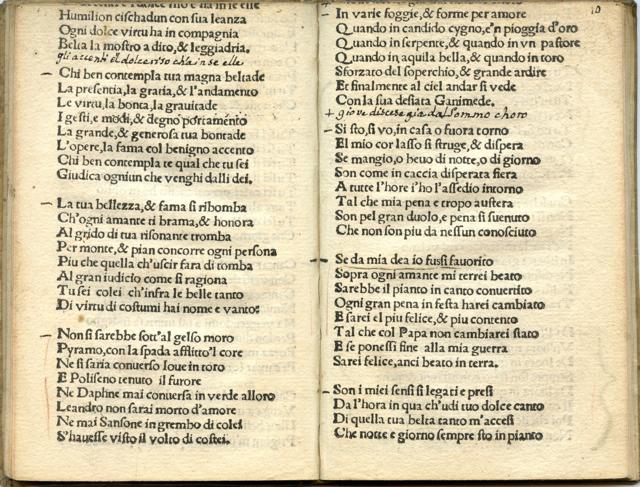 Humilion cischadun con sua leanza
Ogni dolce virtu ha in compagnia
Belta la mostro a dito, & leggiadria.
gli accenti el dolce riso ch'ain se elle
Chi ben contempla tua magna beltade
La presentia, la gratia, & l'andamento
Le virtu, la bonta, la grauitade
I gesti, e modi, & degno portamento
La grande, & generosa tua bontade
L'opere, la fama col benigno accento
Chi ben contempla te qual che tu sei
Giudica ogniun che venghi dalli dei.
La tua bellezza, & fama si ribomba
Ch'ogni amante ti brama, & honora
Al grido di tua risonante tromba
Per monte, & pian concorre ogni persona
Piu che quella ch'uscir fara di tomba
Al gran iudicio come si ragiona
Tu sei colei ch'infra le belle tanto
Di virtu di costumi hai nome e vanto:
Non si sarebbe sott'al gelso moro
Pyramo, con la spada afflitto'l core
Ne si saria conuerso Ioue in toro
E Poliseno tenuto il furore
Ne Daphne mai conuersa in verde alloro
Leandro non sarai morto d'amore
Ne mai Sansone in grembo di colei
S'hauesse visto il volto di costei.
10
In varie foggie, & forme per amore
Quando in candido cygno, e'n pioggia d'oro
Quando in serpente, & quando in vn pastore
Quando in aquila bella, & quando in toro
Sforzato del soperchio, & grande ardire
Et finalmente al ciel andar si vede
Con la sua desiata Ganimede.
+ gioue discese gia dal sommo choro
Si sto, si vo, in casa o fuora torno
El mio cor lasso si struge, & dispera
Se mangio, o beuo di notte, o di giorno
Son come in caccia disperata fiera
A tutte l'hore i'ho l'assedio intorno
Tal che mia pena e tropo austera
Son pel gran duolo, e pena si suenuto
Che non son piu da nessun conosciuto
Se da mia dea io fussi fauorito
Sopra ogni amante mi terrei beato
Sarebbe il pianto in canto conuertito
Ogni gran pena in festa harei cambiato
E sarei el piu felice, & piu contento
Tal che col Papa non cambiarei stato
E se ponessi fine alla mia guerra
Sarei felice, anci beato in terra.
Son i miei sensi si legati e presi
Da l'hora in qua ch'udi tuo dolce canto
Di quella tua belta tanto m'accesi
Che notte e giorno sempre sto in pianto